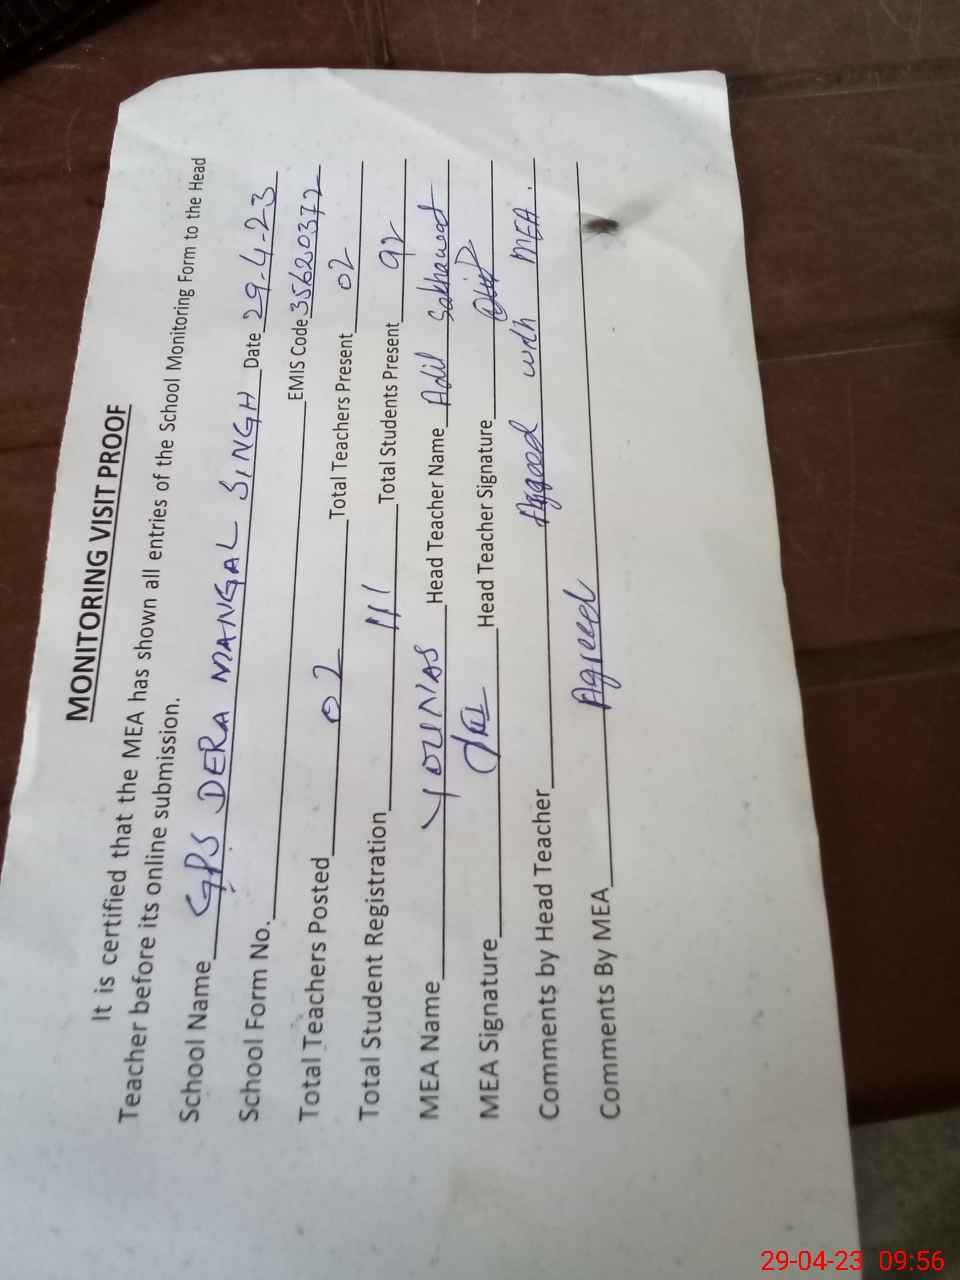 MONITORING VISIT PROOF
It is certified that the MEA has shown all entries of the School Monitoring Form to the Head
Teacher before its online submission.
School Name GPS DERA MANGAL SINGH Date 29-4-23
School Form No. EMIS Code 35620372
Total Teachers Posted 02 Total Teachers Present 02
Total Student Registration 111 Total Students Present 92
MEA Name YOUNAS Head Teacher Name Adil Sakhawat
MEA Signature Head Teacher Signature
Comments by Head Teacher Aggreed with MEA.
Comments By MEA Agreed
29-04-23 09:56